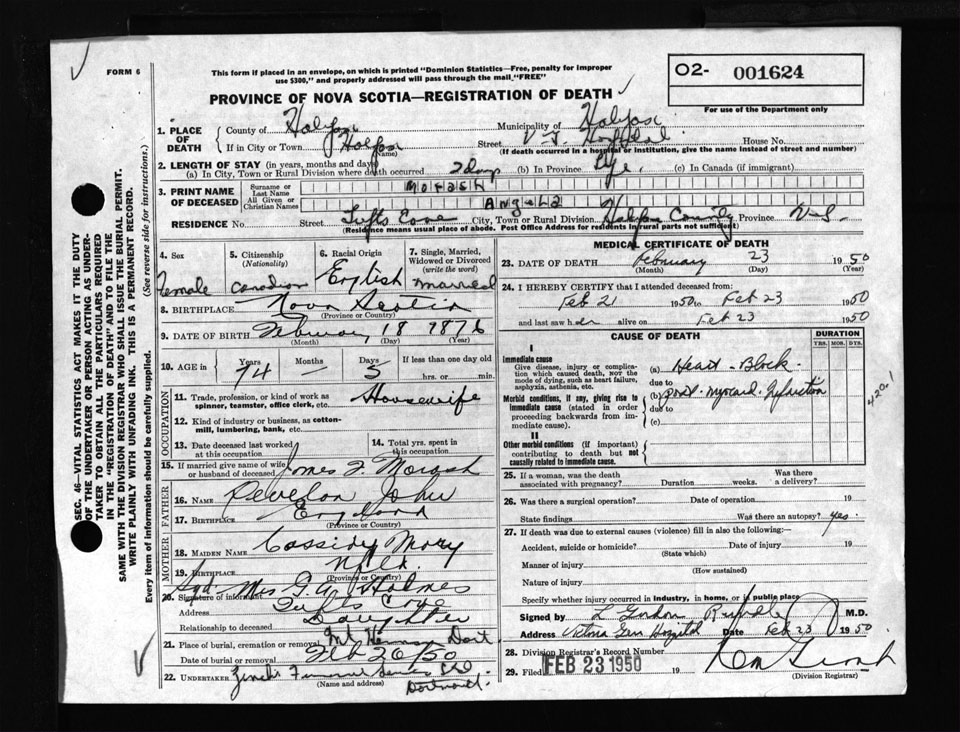 FORM 6
This form if placed in an envelope, on which is printed "Dominion Statistics—Free, penalty for improper
use $300," and properly addressed will pass through the mail "FREE"
PROVINCE OF NOVA SCOTIA—REGISTRATION OF DEATH
O2- 001624
For use of the Department only
SEC. 46—VITAL STATISTICS ACT MAKES IT THE DUTY
OF THE UNDERTAKER OR PERSON ACTING AS UNDER-
TAKER TO OBTAIN ALL THE PARTICULARS REQUIRED
IN THE "REGISTRATION OF DEATH" AND TO FILE THE
SAME WITH THE DIVISION REGISTRAR WHO SHALL ISSUE THE BURIAL PERMIT.
WRITE PLAINLY WITH UNFADING INK. THIS IS A PERMANENT RECORD.
Every item of information should be carefully supplied. (See reverse side for instructions.)
1. PLACE OF DEATH County of Halifax Municipality of Halifax
If in City or Town Halifax Street V. G. Hospital House No.
(Name) (If death occurred in a hospital or institution, give the name instead of street and number)
2. LENGTH OF STAY (in years, months and days)
(a) In City, Town or Rural Division where death occurred 2 days (b) In Province Life (c) In Canada (if immigrant)
3. PRINT NAME OF DECEASED Surname or Last Name Morash
All Given or Christian Names Angela
RESIDENCE No. Street Tufts Cove City, Town or Rural Division Halifax County Province N.S.
(Residence means usual place of abode. Post Office Address for residents in rural parts not sufficient)
4. Sex Female
5. Citizenship (Nationality) Canadian
6. Racial Origin English
7. Single, Married, Widowed or Divorced (write the word) Married
8. BIRTHPLACE Nova Scotia
(Province or Country)
9. DATE OF BIRTH February 18 1876
(Month) (Day) (Year)
10. AGE in Years 74 Months — Days 5 If less than one day old hrs. or min.
OCCUPATION
11. Trade, profession, or kind of work as spinner, teamster, office clerk, etc. Housewife
12. Kind of industry or business, as cotton-mill, lumbering, bank, etc.
13. Date deceased last worked at this occupation
14. Total yrs. spent in this occupation
15. If married give name of wife or husband of deceased James F. Morash
FATHER
16. NAME John
17. BIRTHPLACE England
(Province or Country)
MOTHER
18. MAIDEN NAME Cassidy Mary
19. BIRTHPLACE Nfld.
(Province or Country)
20. Signature of informant Sgd. Mrs. G. A. Holmes
Address Tufts Cove
Relationship to deceased Daughter
21. Place of burial, cremation or removal Mt. Hermon Dart
Date of burial or removal Feb 26/50
22. UNDERTAKER Funeral Service Ltd
(Name and address)
MEDICAL CERTIFICATE OF DEATH
23. DATE OF DEATH February 23 1950
(Month) (Day) (Year)
24. I HEREBY CERTIFY that I attended deceased from:
Feb 21 1950 to Feb 23 1950
and last saw her alive on Feb 23 1950
CAUSE OF DEATH DURATION
YRS. MOS. DYS.
I
Immediate cause
Give disease, injury or complication which caused death, NOT the mode of dying, such as heart failure, asphyxia, asthenia, etc.
(a) Heart - Block.
due to
Morbid conditions, if any, giving rise to immediate cause (stated in order proceeding backwards from immediate cause).
(b) post - myocard. Infarction
due to
(c)
420.1
II
Other morbid conditions (if important) contributing to death but not causally related to immediate cause.
25. If a woman, was the death associated with pregnancy? Duration weeks. Was there a delivery?
26. Was there a surgical operation? Date of operation 19
State findings Was there an autopsy? yes.
27. If death was due to external causes (violence) fill in also the following:—
Accident, suicide or homicide? Date of injury 19
(State which)
Manner of injury
(How sustained)
Nature of injury
Specify whether injury occurred in industry, in home, or in public place
Signed by L Gordon M.D.
Address Victoria Gen Hospital Date Feb 23 1950
28. Division Registrar's Record Number
29. Filed FEB 23 1950 19
(Division Registrar)